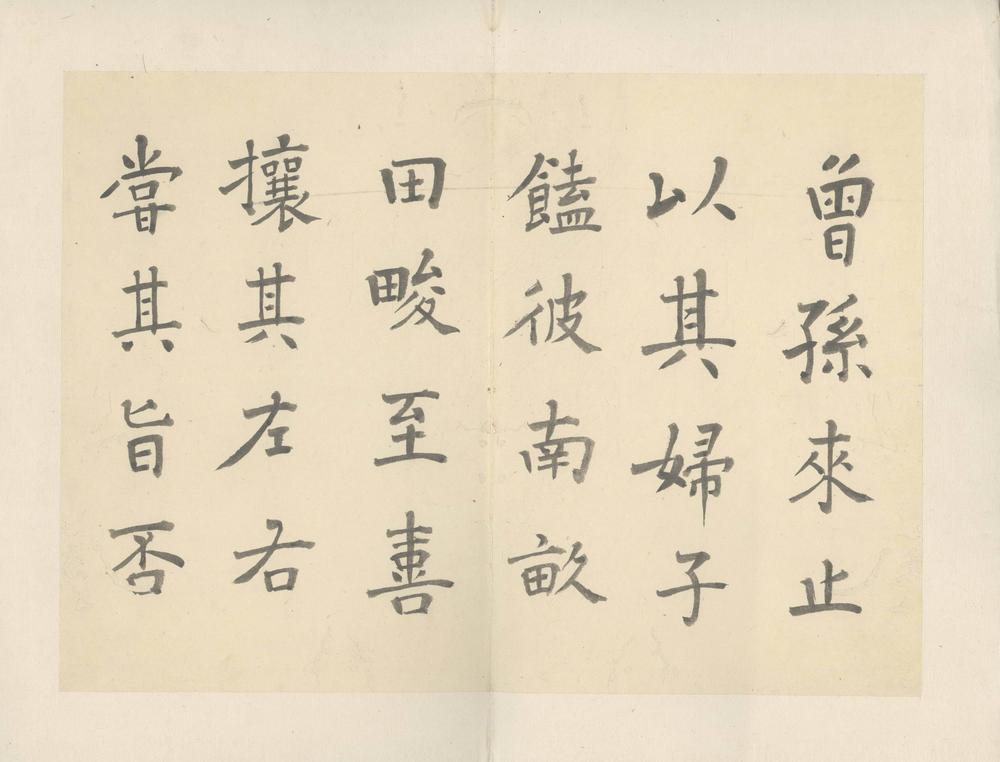 曾孫來止
以其婦子
饁彼南畝
田畯至喜
攘其左右
嘗其旨否